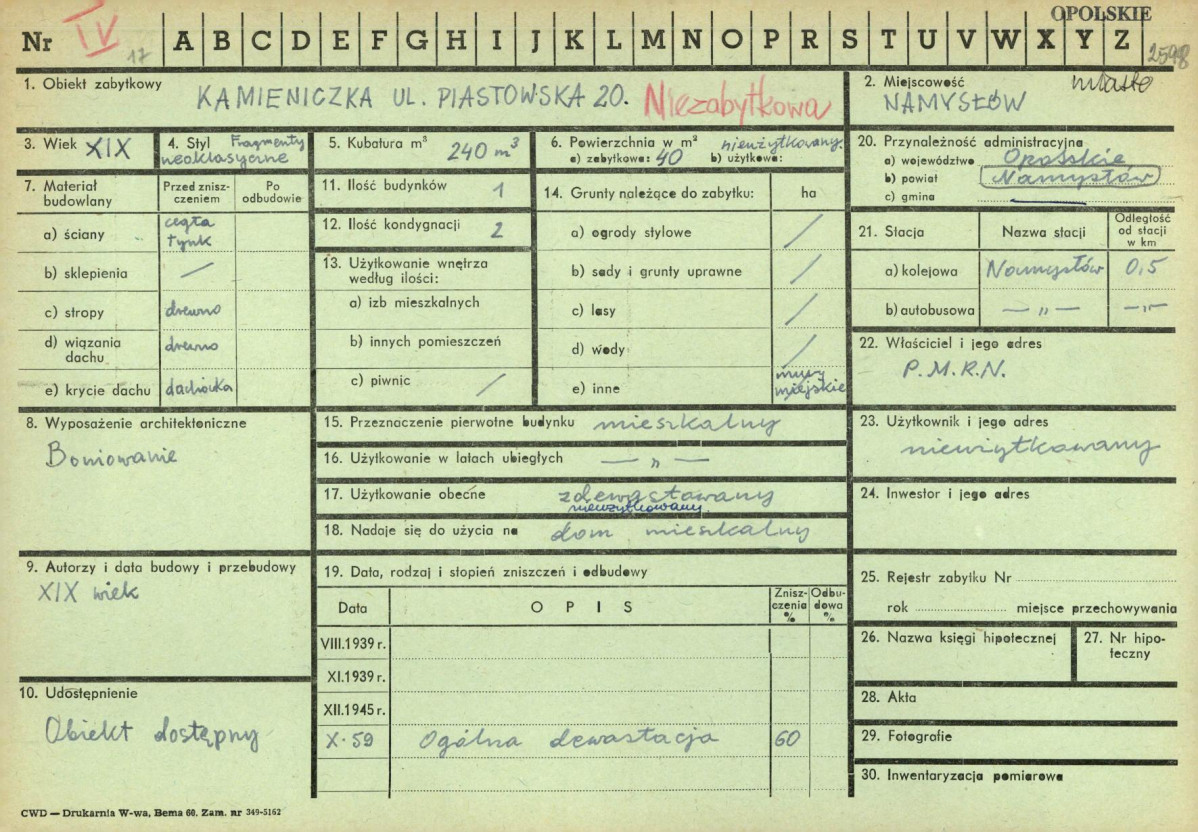 OPOLSKIE
Nr IV 17 A B C D E F G H I J K L M N O P R S T U V W X Y Z 2598
1. Obiekt zabytkowy
KAMIENICZKA UL. PIASTOWSKA 20. Niezabytkowa
2. Miejscowość miasto
NAMYSŁÓW
3. Wiek XIX
4. Styl Fragmenty
neoklasyczne
5. Kubatura m³ 240 m³
6. Powierzchnia w m² nieużytkowany.
a) zabytkowa: 40 b) użytkowa:
20. Przynależność administracyjna
a) województwo Opolskie
b) powiat Namysłów
c) gmina —
7. Materiał budowlany
Przed zniszczeniem
Po odbudowie
a) ściany cegła
tynk
b) sklepienia /
c) stropy drewno
d) wiązania dachu drewno
e) krycie dachu dachówka
11. Ilość budynków 1
12. Ilość kondygnacji 2
13. Użytkowanie wnętrza
według ilości:
a) izb mieszkalnych
b) innych pomieszczeń
c) piwnic /
14. Grunty należące do zabytku: ha
a) ogrody stylowe /
b) sady i grunty uprawne /
c) lasy /
d) wody /
e) inne mury
miejskie
21. Stacja Nazwa stacji Odległość od stacji w km
a) kolejowa Namysłów 0,5
b) autobusowa — „ — — „ —
22. Właściciel i jego adres
P.M.R.N.
8. Wyposażenie architektoniczne
Boniowanie
15. Przeznaczenie pierwotne budynku mieszkalny
16. Użytkowanie w latach ubiegłych — „ —
17. Użytkowanie obecne zdewastowany
nieużytkowany
18. Nadaje się do użycia na dom mieszkalny
23. Użytkownik i jego adres
nieużytkowany
24. Inwestor i jego adres
9. Autorzy i data budowy i przebudowy
XIX wiek
19. Data, rodzaj i stopień zniszczeń i odbudowy
Data O P I S Zniszczenia % Odbudowa %
VIII.1939 r.
XI.1939 r.
XII.1945 r.
X·59 Ogólna dewastacja 60
25. Rejestr zabytku Nr
rok miejsce przechowywania
26. Nazwa księgi hipotecznej
27. Nr hipoteczny
10. Udostępnienie
Obiekt dostępny
28. Akta
29. Fotografie
30. Inwentaryzacja pomiarowa
CWD — Drukarnia W-wa, Bema 60. Zam. nr 349-5162